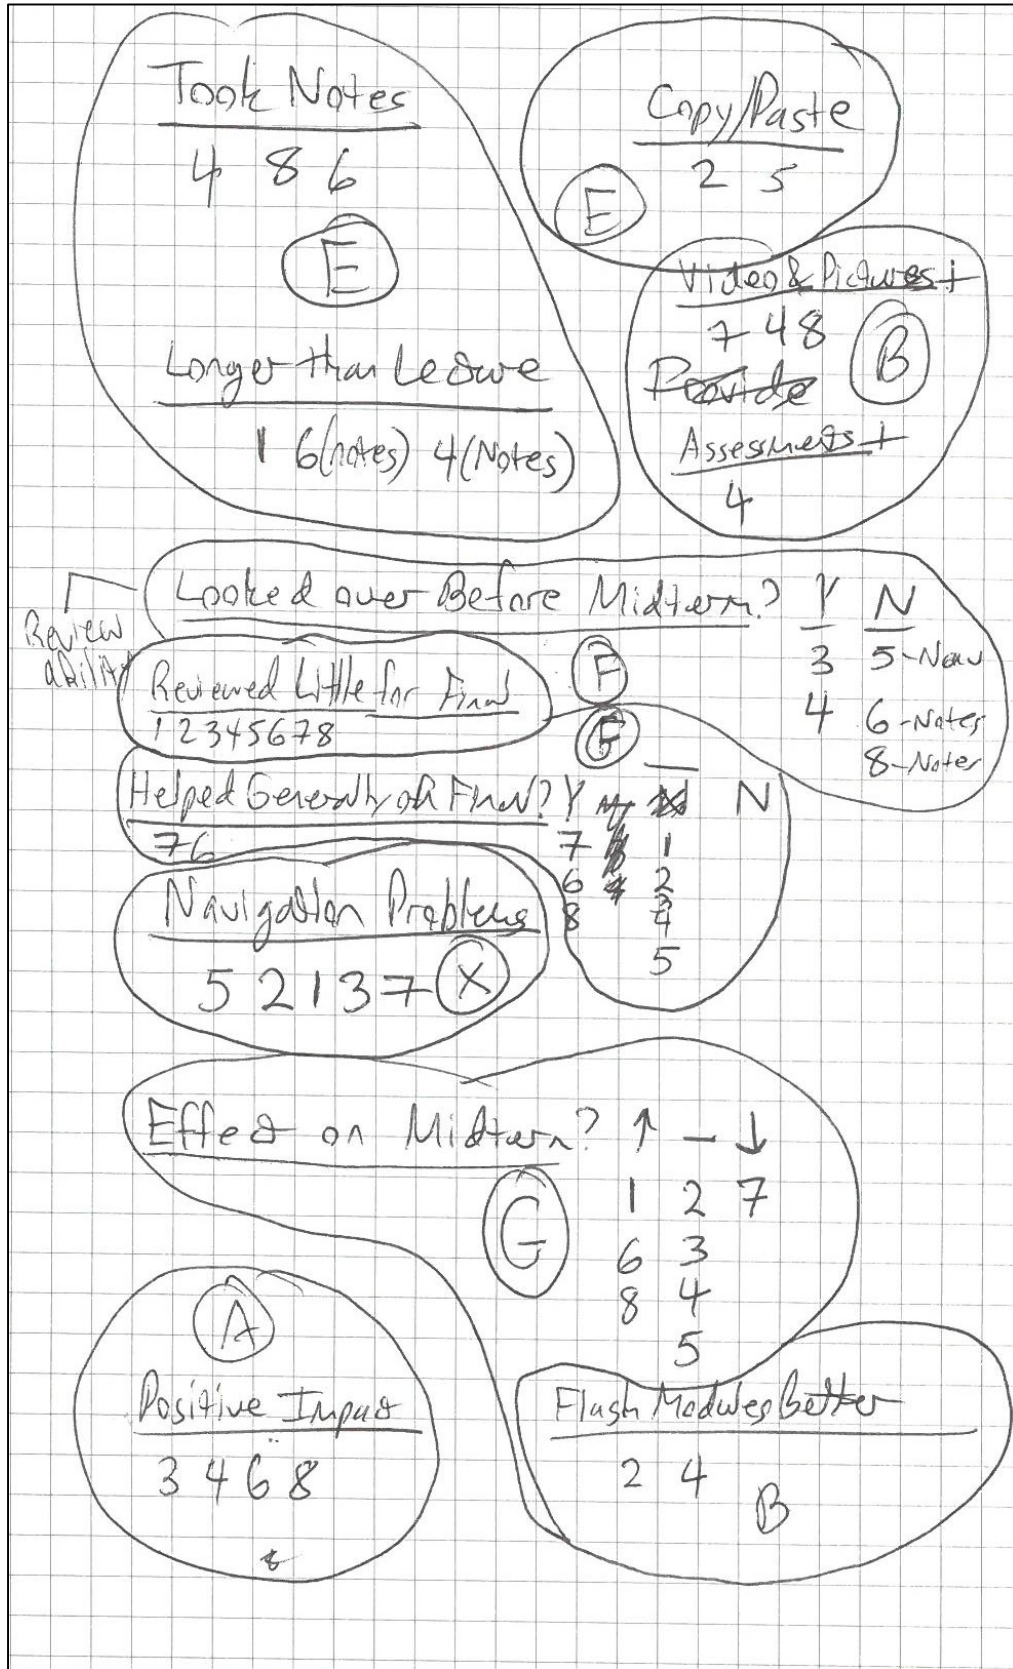 Took Notes
4 8 6
E
Longer than Lecture
1 6(notes) 4(Notes)
Copy/Paste
2 5
E
Video & Pictures +
7 4 8
B
Provide
Assessments +
4
Looked over Before Midterm? Y N
3 5-New
4 6-Notes
8-Notes
Review
ability
F
Reviewed Little for Final
1 2 3 4 5 6 7 8
F
Helped Generally on Final? Y — N
7 6
7 1
6 2
3
8 4
5
Navigation Problems
5 2 1 3 7 X
Effect on Midterm? ↑ — ↓
1 2 7
6 3
8 4
5
G
A
Positive Impact
3 4 6 8
Flash Modules Better
2 4
B